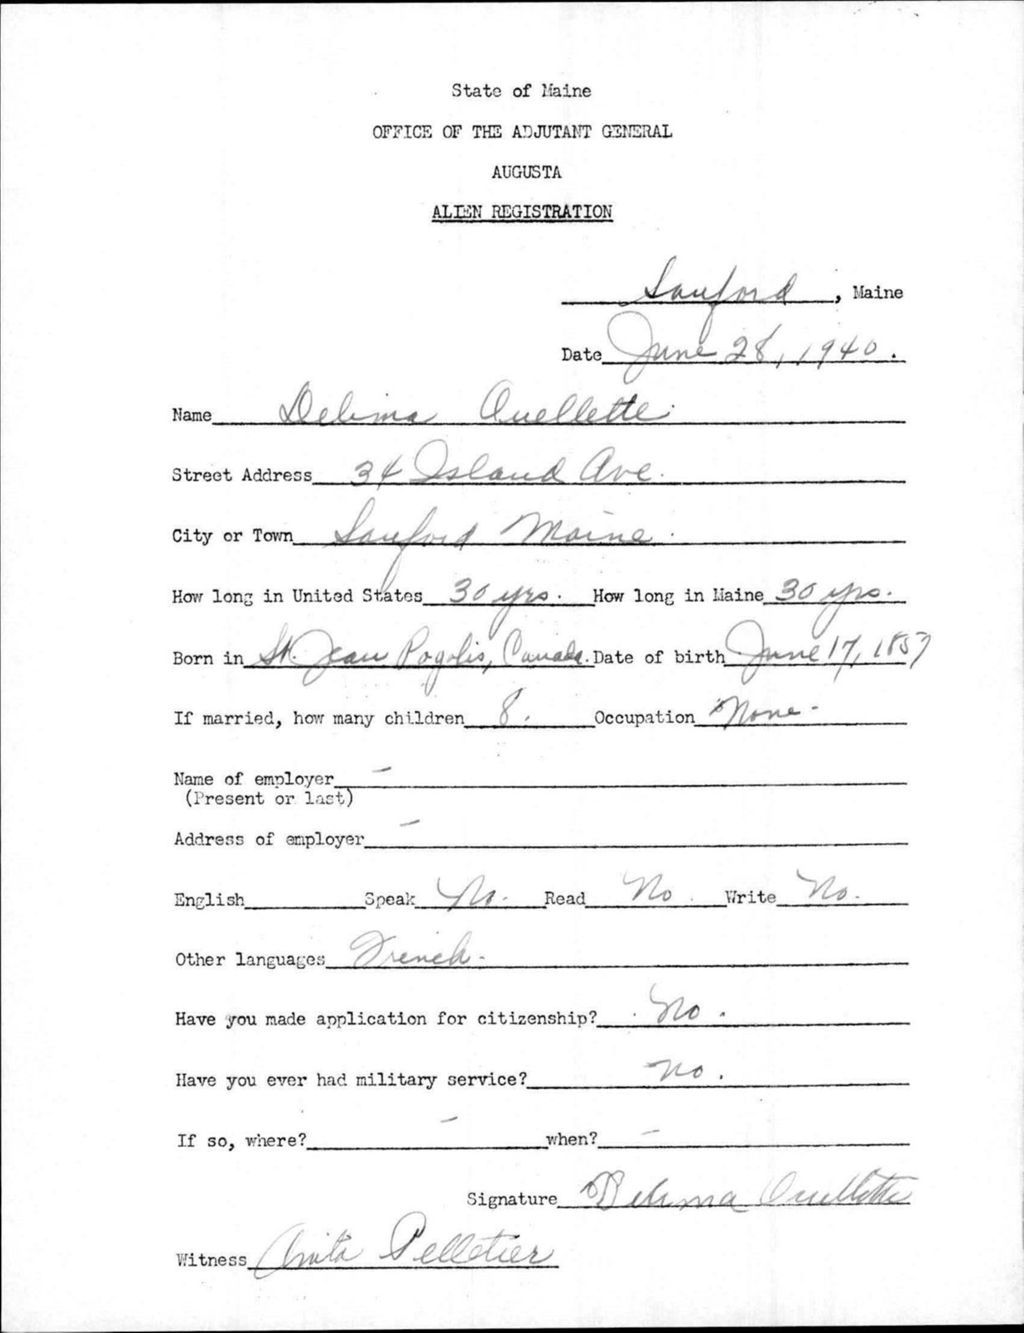 State of Maine
OFFICE OF THE ADJUTANT GENERAL
AUGUSTA
ALIEN REGISTRATION
Sanford, Maine
Date June 28, 1940.
Name Delima Ouellette
Street Address 34 Island Ave.
City or Town Sanford Maine
How long in United States 30 yrs. How long in Maine 30 yrs.
Born in St. Jean Pogolis, Canada. Date of birth June 17, 1857
If married, how many children 8. Occupation None-
Name of employer -
(Present or last)
Address of employer -
English Speak No. Read No. Write No.
Other languages French-
Have you made application for citizenship? No.
Have you ever had military service? No.
If so, where? - when? -
Signature Delima Ouellette
Witness Anita Pelletier